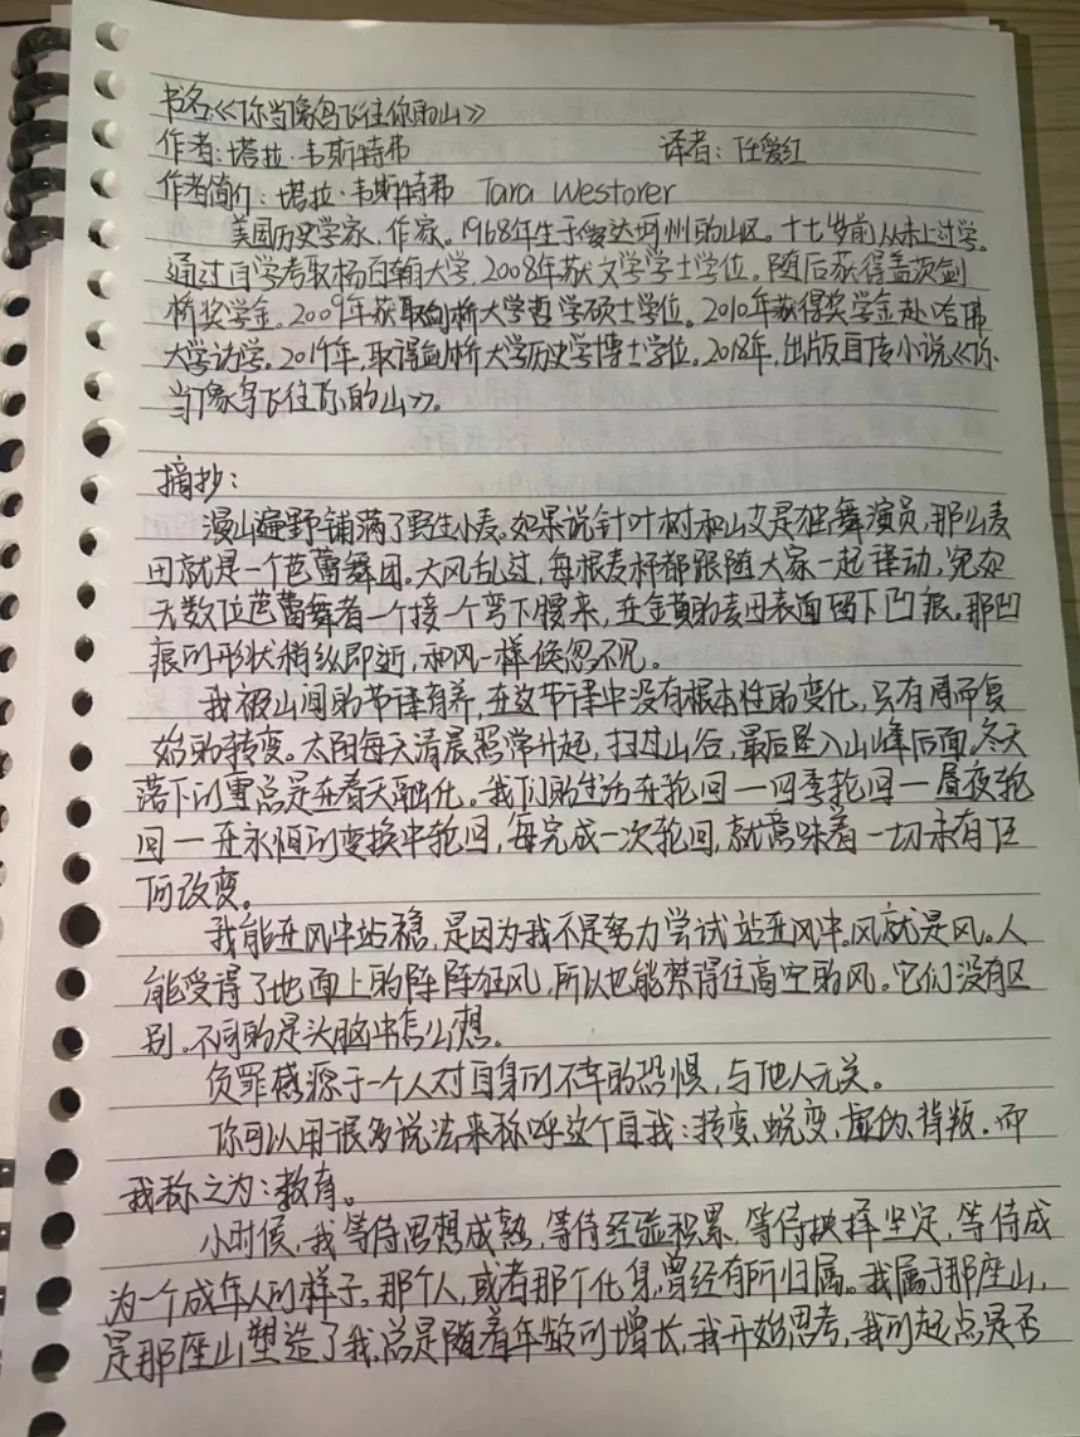 书名《你当像鸟飞往你的山》
作者:塔拉·韦斯特弗 译者:任爱红
作者简介:塔拉·韦斯特弗 Tara Westorer
美国历史学家、作家。1968年生于爱达荷州的山区。十七岁前从未上过学。
通过自学考取杨百翰大学,2008年获文学学士学位。随后获得盖茨剑
桥奖学金。2009年获取剑桥大学哲学硕士学位。2010年获得奖学金赴哈佛
大学访学。2014年,取得剑桥大学历史学博士学位。2018年,出版自传小说《你
当像鸟飞往你的山》。
摘抄:
漫山遍野铺满了野生小麦。如果说针叶树和山艾是独舞演员,那么麦
田就是一个芭蕾舞团。大风乱过,每根麦杆都跟随大家一起律动,宛如
无数位芭蕾舞者一个接一个弯下腰来,在金黄的麦田表面留下凹痕。那凹
痕的形状稍纵即逝,和风一样倏忽不见。
我被山间的节律育养,在这节律中没有根本性的变化,只有周而复
始的转变。太阳每天清晨照常升起,扫过山谷,最后坠入山峰后面。冬天
落下的雪总是在春天融化。我们的生活在轮回一四季轮回一昼夜轮
回一在永恒的变换中轮回,每完成一次轮回,就意味着一切未有任
何改变。
我能在风中站稳,是因为我不是努力尝试站在风中。风就是风。人
能受得了地面上的阵阵狂风,所以也能禁得住高空的风。它们没有区
别。不同的是头脑中怎么想。
负罪感源于一个人对自身的不幸的恐惧,与他人无关。
你可以用很多说法来称呼这个自我:转变、蜕变、虚伪、背叛。而
我称之为:教育。
小时候,我等待思想成熟,等待经验积累,等待抉择坚定,等待成
为一个成年人的样子。那个人,或者那个化身,曾经有所归属。我属于那座山,
是那座山塑造了我,总是随着年龄的增长,我开始思考,我的起点是否